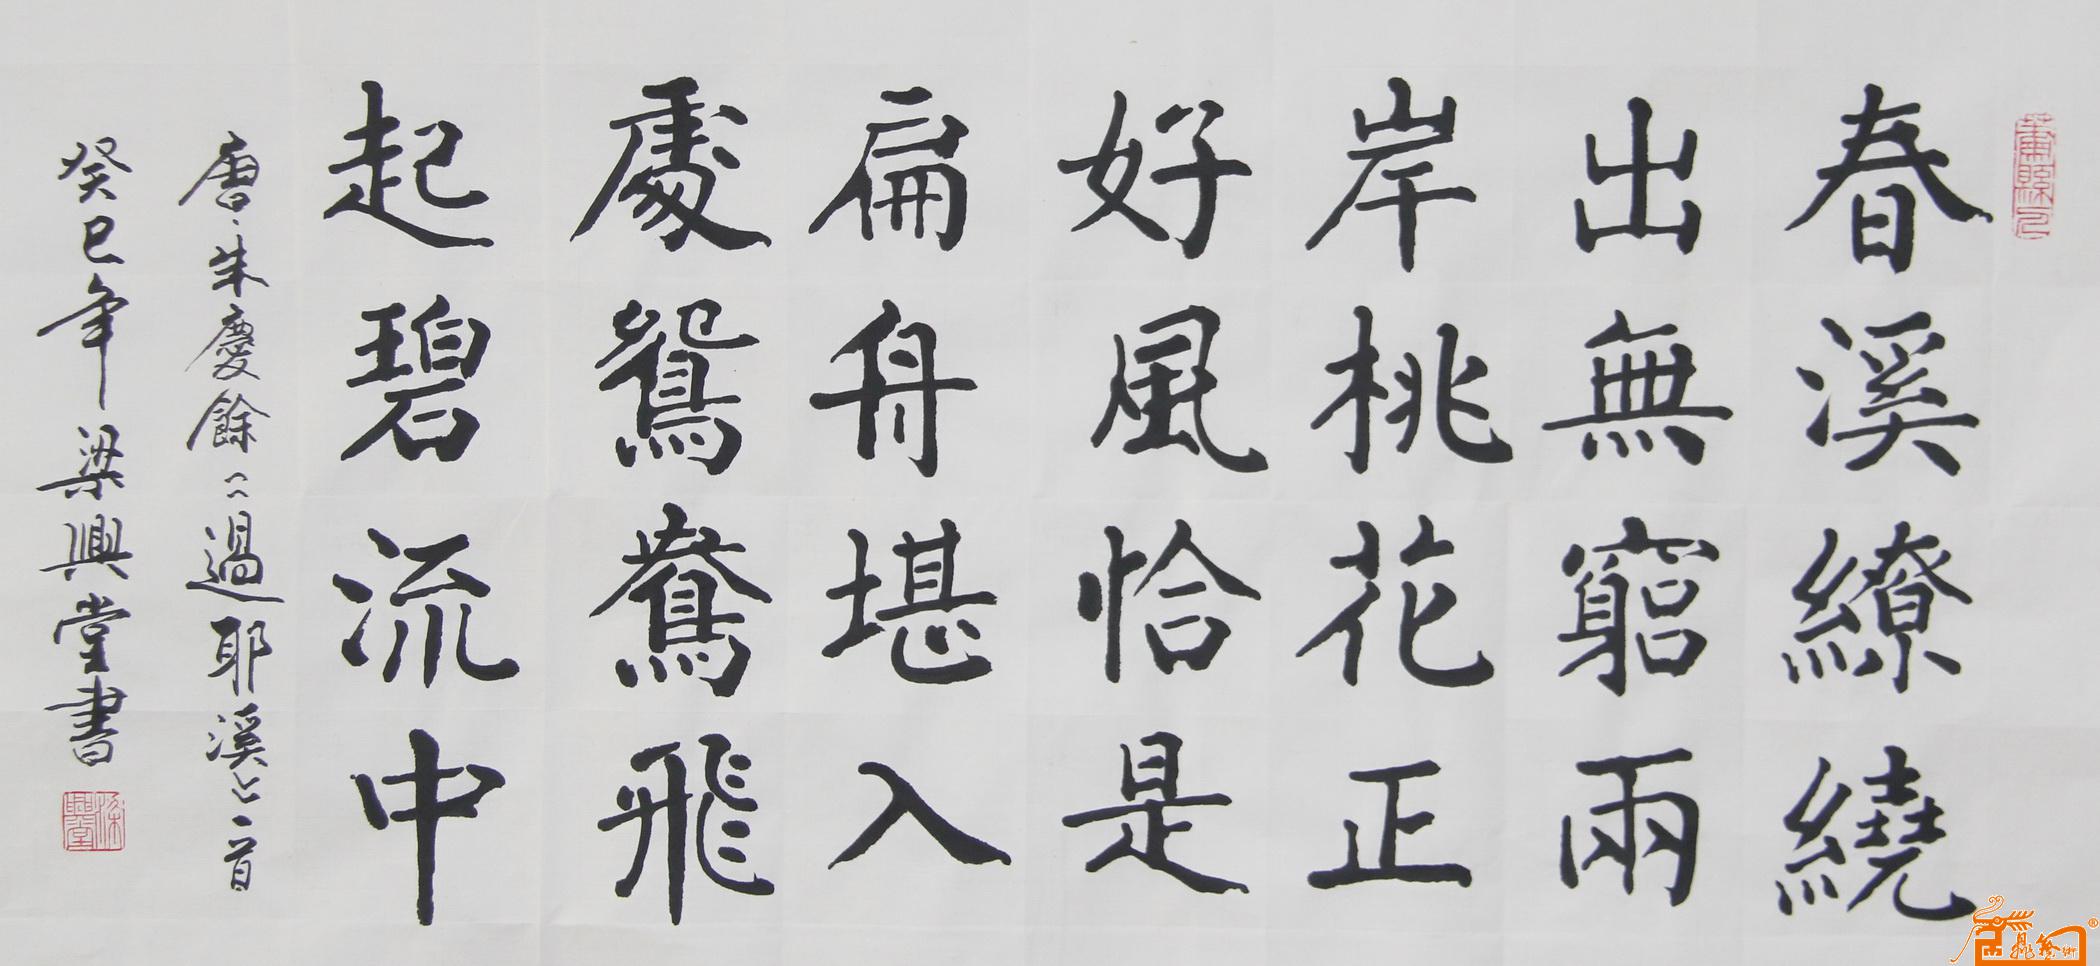 春溪繚繞
出無窮兩
岸桃花正
好風恰是
扁舟堪入
處鴛鴦飛
起碧流中
唐朱慶餘過耶溪一首
癸巳年梁興堂書